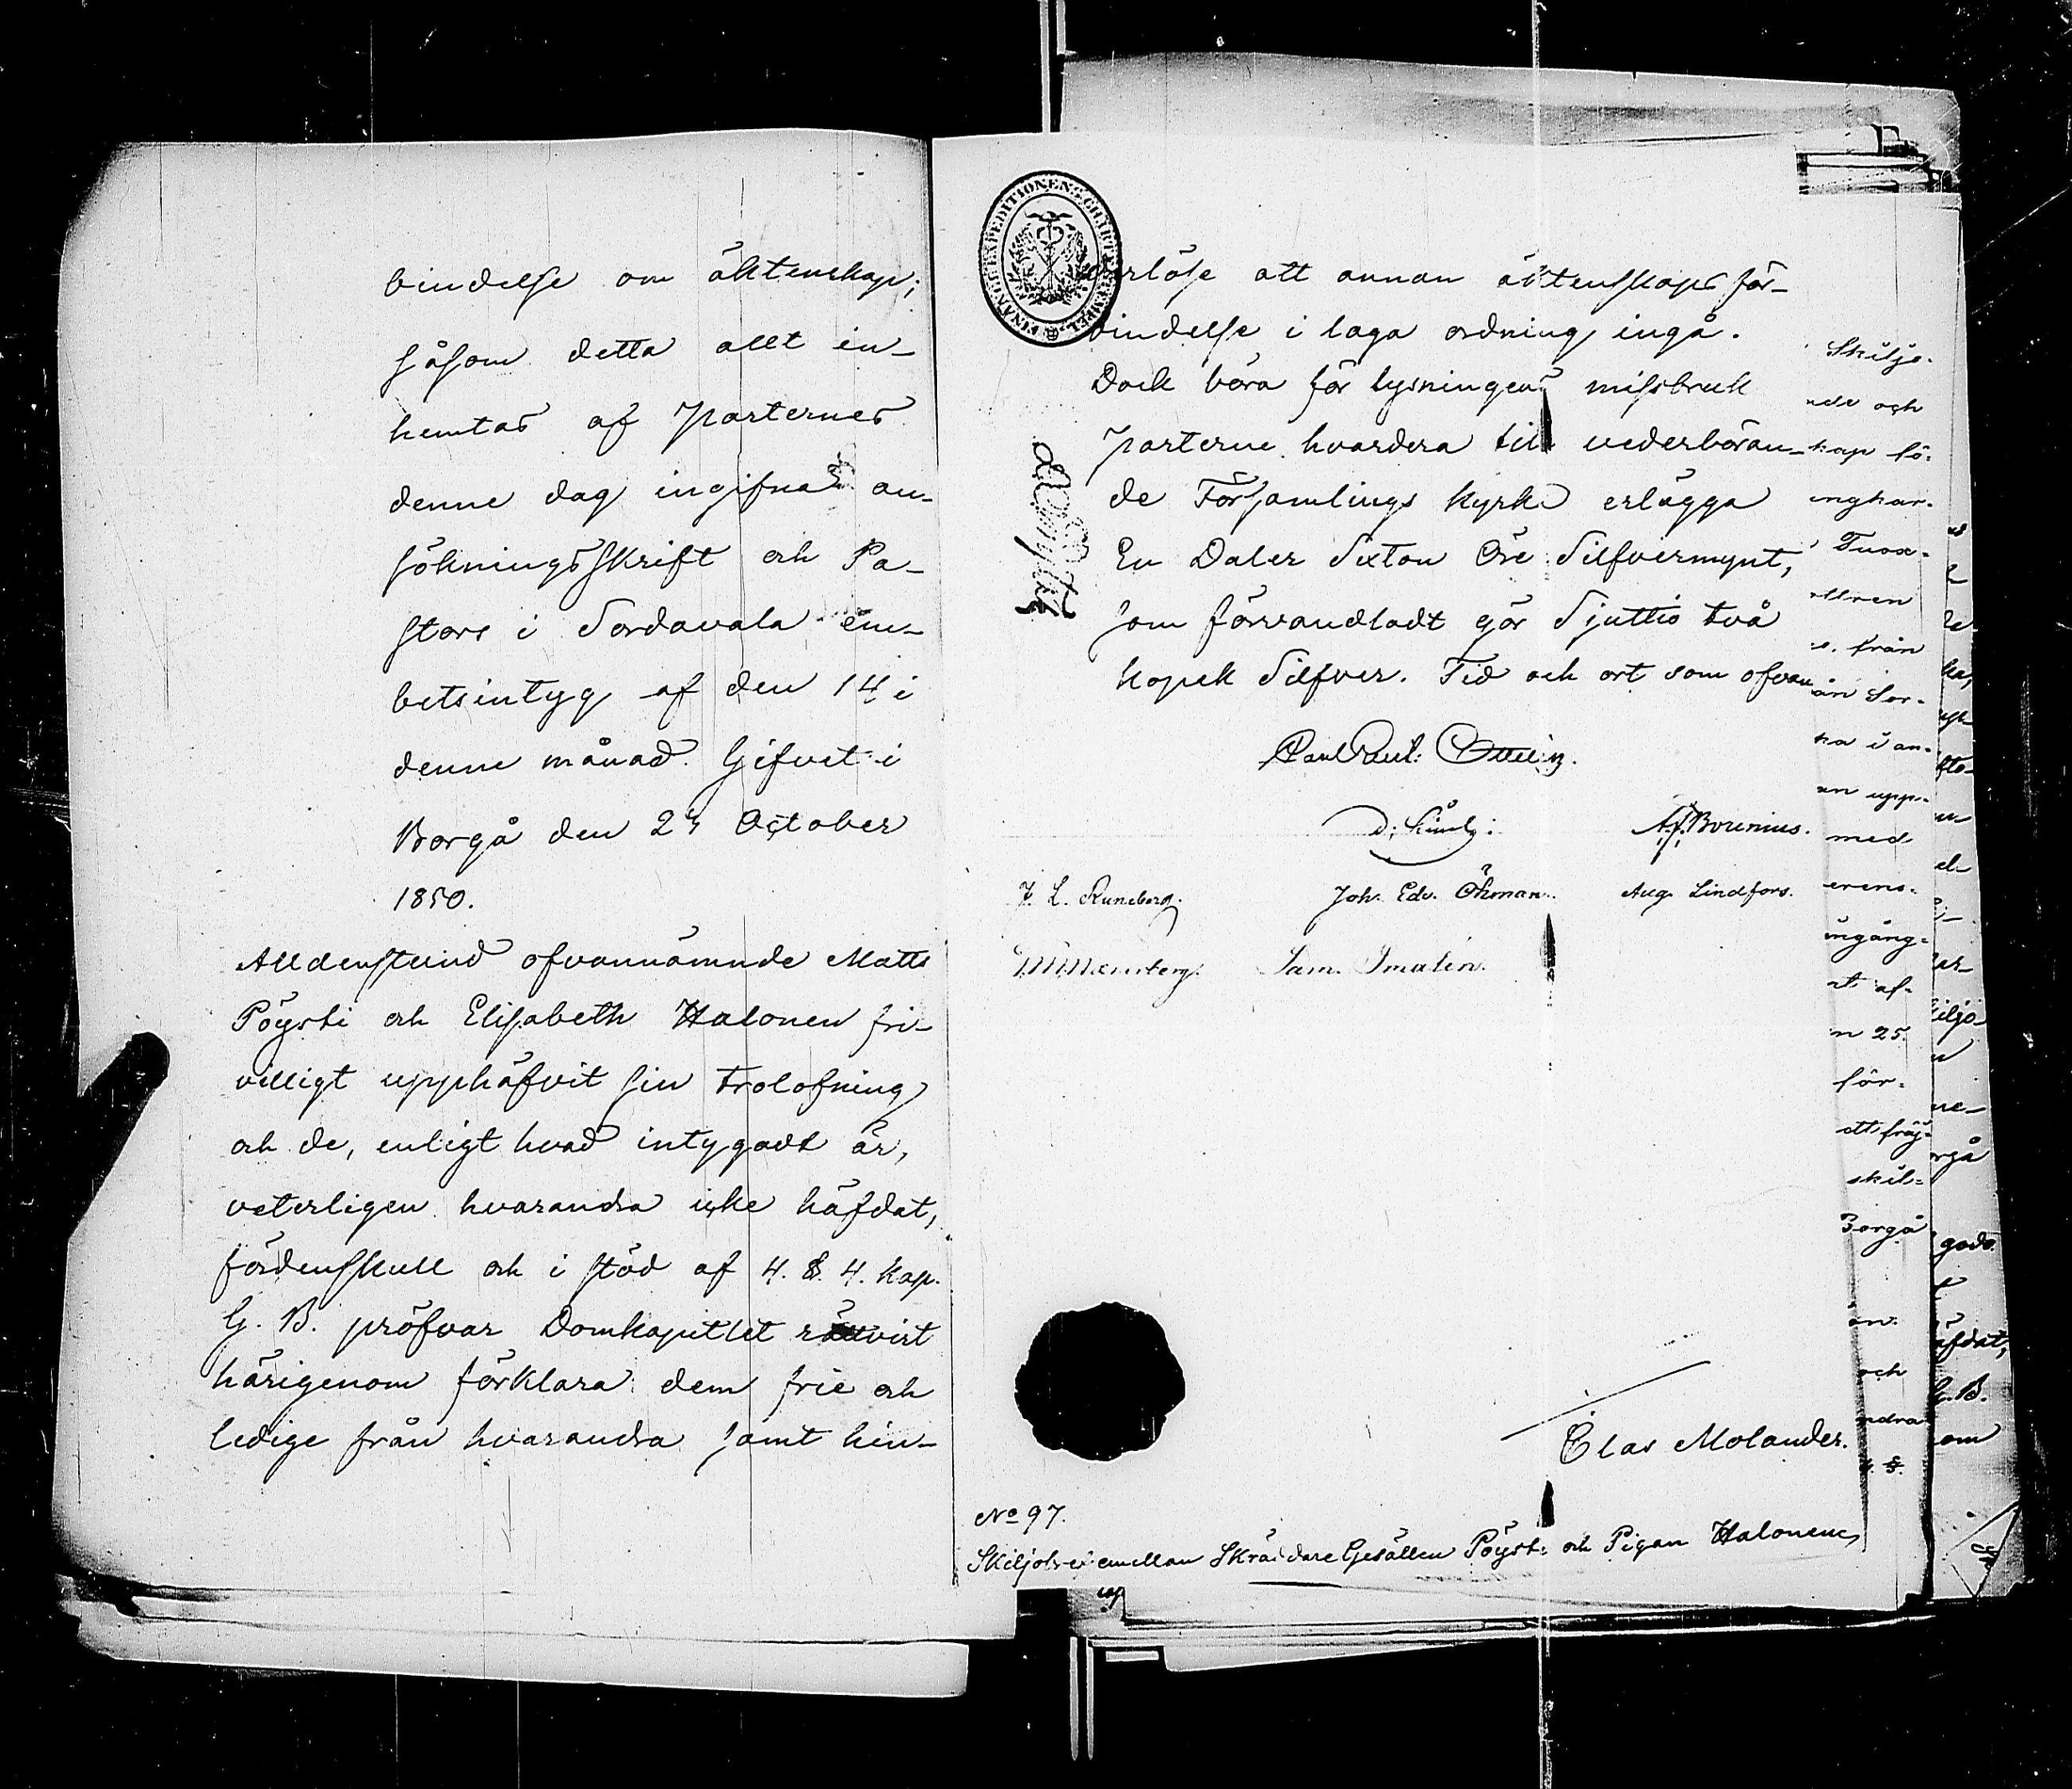 bindelse om äktenskap;
såsom detta allt in-
hemtas af Parternes
denne dag ingifna an-
sökningsskrift och Pa-
stors i Sordavala em-
betsintyg af den 14 i
denne månad. Gifvet i
Borgå den 23 October
1850.
Alldenstund ofvannämnde Matts
Pöysti och Elisabeth Halonen fri-
villigt upphäfvit sin trolofning
och de, enligt hvad intygadt är,
veterligen hvarandra icke häfdat,
fördenskull och i stöd af 4. §. 4. Kap.
G. B. pröfvar Domkapitlet rättvist
härigenom förklara dem frie och
ledige från hvarandra samt hin-
FINANCE EXPEDITIONENS CHARTÆ STEMPEL
derlöse att annan äktenskaps för-
bindelse i laga ordning ingå.
Dock böra för lysningens missbruk
parterne hvardera till vederböran-
de Församlings Kyrka erlägga
En Daler Sexton Öre Silfvermynt,
som förvandladt gör Sjuttio två
kopek Silfver. Tid och ort som ofvan
J. L. Runeberg.
Joh. Edv. Öhman.
Aug. Lindfors.
Clas Molander.
No 97.
Skiljobref emellan Skräddare Gesällen Pöysti och Pigan Halonen
Skiljo-
nde och
kap fö-
inghar-
från
an upp-
med
erens-
ingång-
nt af
n 25.
för-
skil-
Borgå
och
ndra
4. §.
rgå
äfdat,
G. B.
om